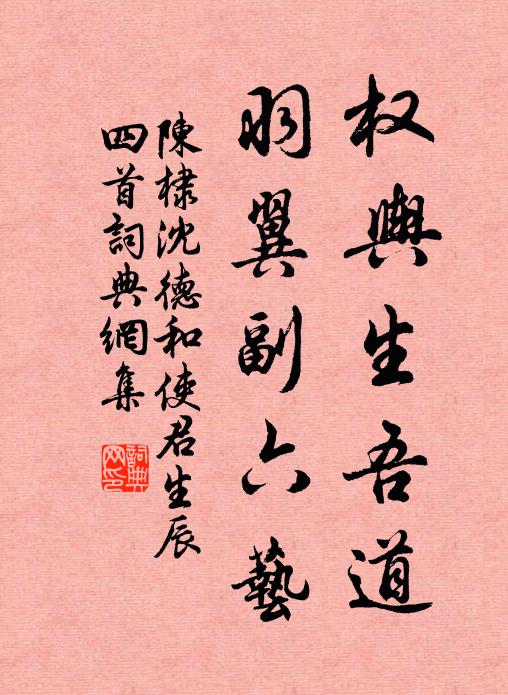 权輿生吾道
羽翼副六藝
陳棣沈德和使君生辰
四首詞典網集
詞典
网印